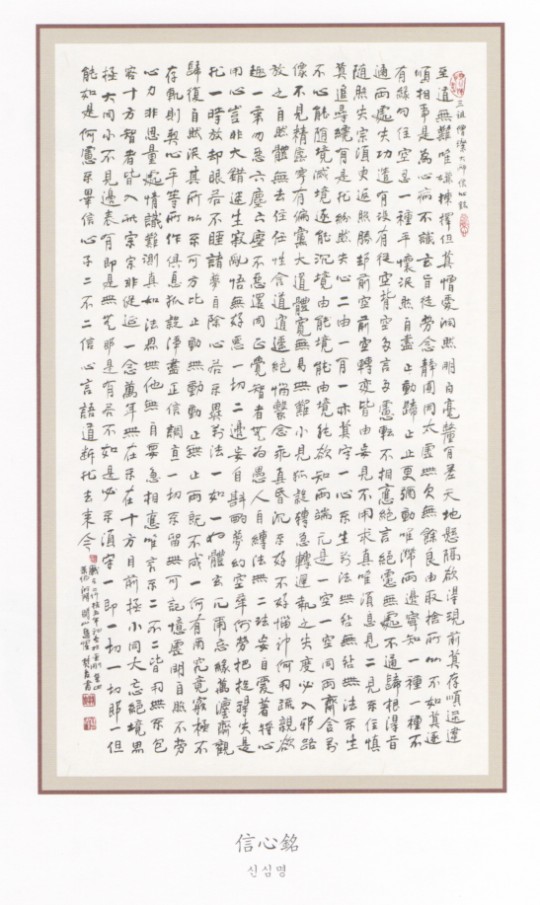 三祖僧璨大師信心銘
至道無難唯嫌揀擇但莫憎愛洞然明白毫釐有差天地懸隔欲得現前莫存順逆違
順相爭是為心病不識玄旨徒勞念靜圓同太虛無欠無餘良由取捨所以不如莫逐
有緣勿住空忍一種平懷泯然自盡止動歸止止更彌動唯滯兩邊寧知一種一種不
通兩處失功遣有沒有從空背空多言多慮轉不相應絕言絕慮無處不通歸根得旨
隨照失宗須臾返照勝却前空前空轉變皆由妄見不用求真唯須息見二見不住慎
莫追尋纔有是非紛然失心二由一有一亦莫守一心不生萬法無咎無咎無法不生
不心能隨境滅境逐能沉境由能境能由境能欲知兩端元是一空一空同兩齊含萬
像不見精麁寧有偏黨大道體寬無易無難小見狐疑轉急轉遲執之失度必入邪路
放之自然體無去住任性合道逍遙絕惱繫念乖真昏沉不好不好惱神何用疏親欲
趣一乘勿惡六塵六塵不惡還同正覺智者無為愚人自縛法無二法妄自愛著將心
用心豈非大錯迷生寂亂悟無好惡一切二邊妄自斟酌夢幻空華何勞把捉得失是
非一時放却眼若不睡諸夢自除心若不異萬法一如一如體玄兀爾忘緣萬法齊觀
歸復自然泯其所以不可方比止動無動動止無止兩既不成一何有爾究竟窮極不
存軌則契心平等所作俱息狐疑淨盡正信調直一切不留無可記憶虛明自照不勞
心力非思量處情識難測真如法界無他無自要急相應唯言不二不二皆同無不包
容十方智者皆入此宗宗非促延一念萬年無在不在十方目前極小同大忘絕境界
極大同小不見邊表有即是無無即是有若不如是必不須守一即一切一切即一但
能如是何慮不畢信心不二不二信心言語道斷非去來今
信心銘
신심명